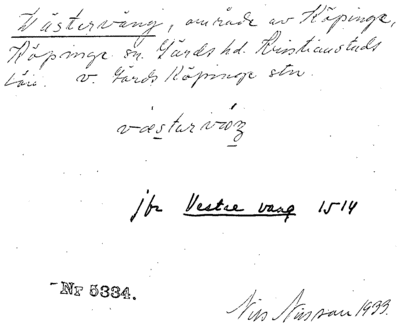 Västervång, område av Köpinge,
Köpinge sn. Gärds hd. Kristianstads
län. v. Gärds Köpinge stn.
væstarváŋ
jfr Vestre vang 1514
Nr 5334.
Nils Nilsson 1933.